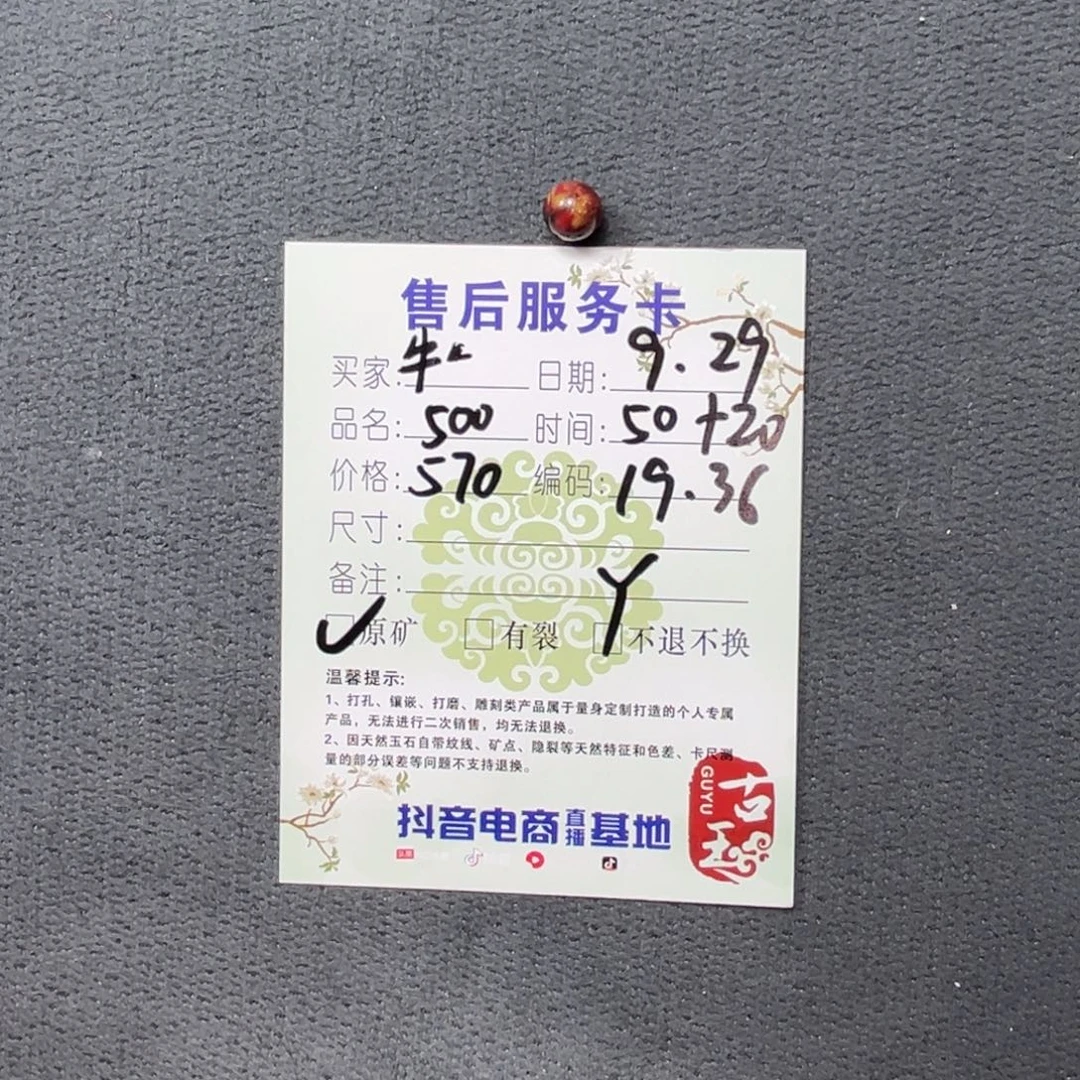 售后服务卡
买家: 牛 日期: 9.29
品名: 500 时间: 50+20
价格: 570 编码: 19.36
尺寸:
备注: Y
✓原矿 有裂 不退不换
温馨提示:
1、打孔、镶嵌、打磨、雕刻类产品属于量身定制打造的个人专属
产品，无法进行二次销售，均无法退换。
2、因天然玉石自带纹线、矿点、隐裂等天然特征和色差、卡尺测
量的部分误差等问题不支持退换。
抖音电商直播基地
古玉
GUYU